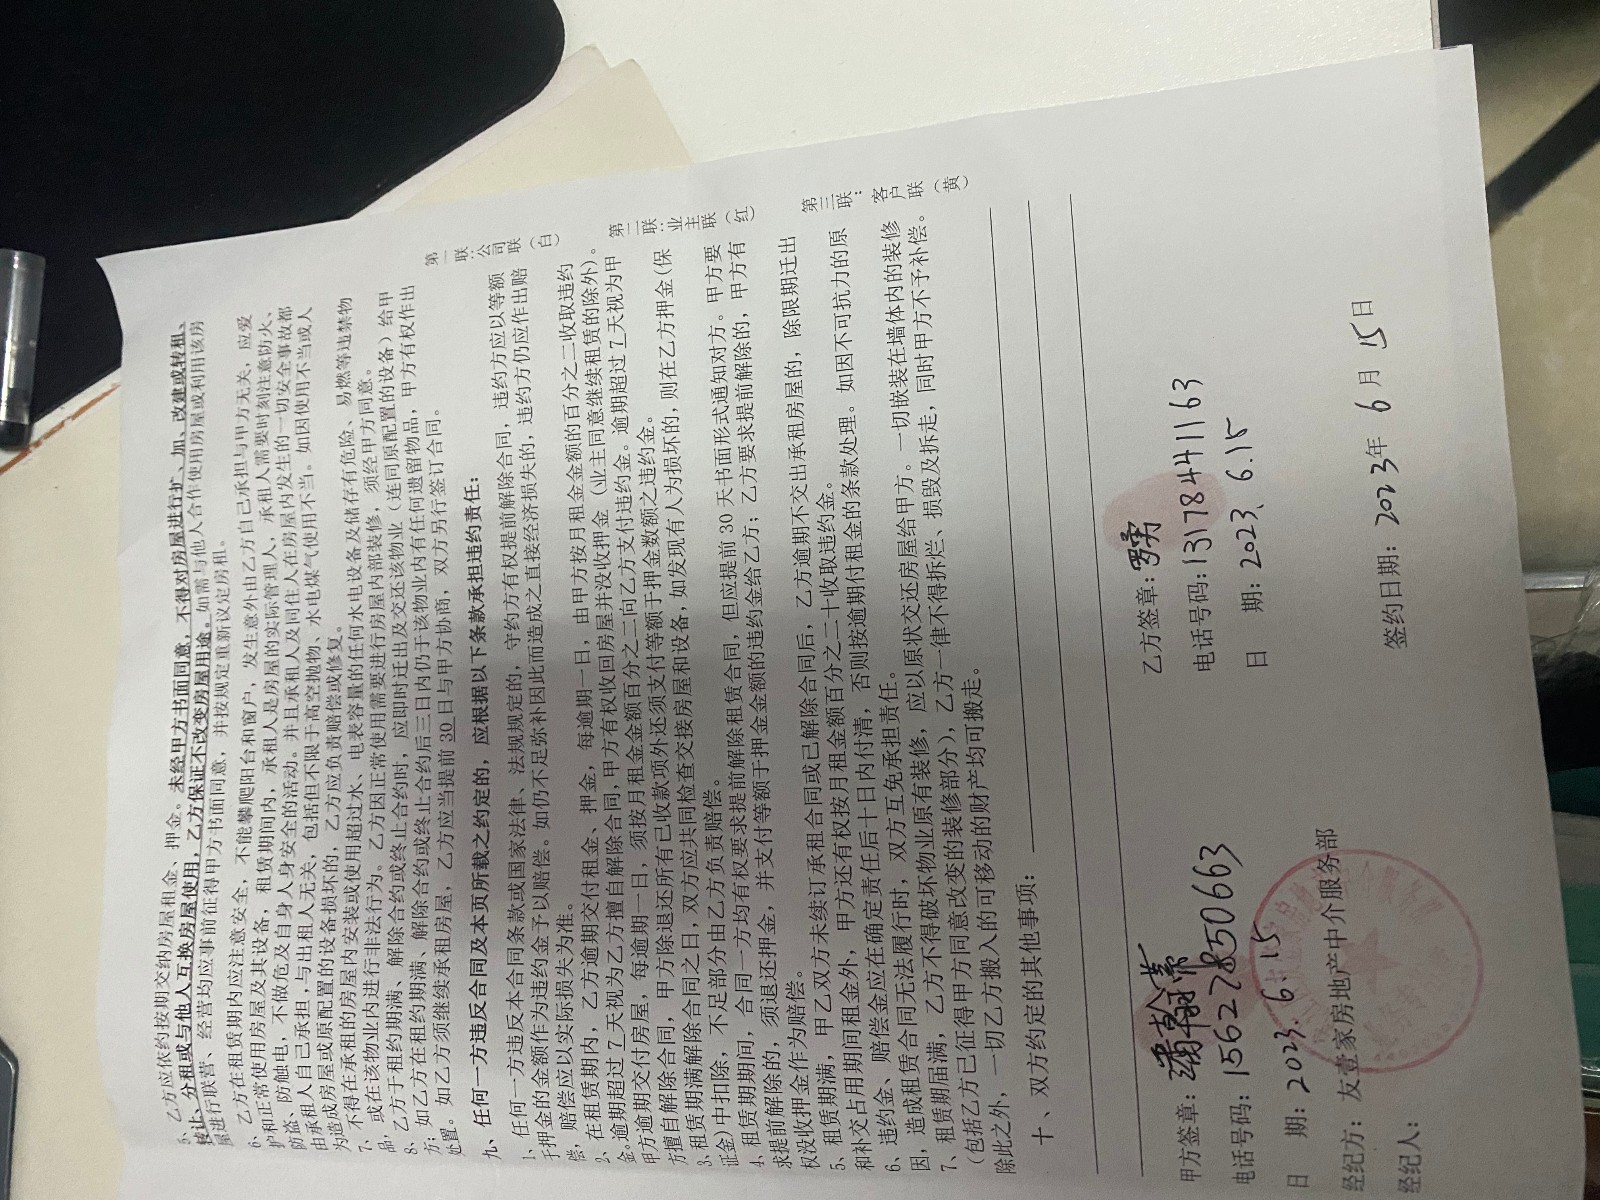 5、乙方应依约按期交纳房屋租金、押金。未经甲方书面同意，不得对房屋进行扩、加、改建或转租、
转让、分租或与他人互换房屋使用，乙方保证不改变房屋用途。如需与他人合作使用房屋或利用该房
屋进行联营、经营均应事前征得甲方书面同意，并按规定重新议定房租。
6、乙方在租赁期内应注意安全，不能攀爬阳台和窗户，发生意外由乙方自己承担与甲方无关，应爱
护和正常使用房屋及其设备，租赁期间内，承租人是房屋的实际管理人，承租人需要时刻注意防火、
防盗、防触电，不做危及自身人身安全的活动。并且承租人及同住人在房屋内发生的一切安全事故都
由承租人自己承担，与出租人无关，包括但不限于高空抛物、水电煤气使用不当。如因使用不当或人
为造成房屋或原配置的设备损坏的，乙方应负责赔偿或修复。
7、不得在承租的房屋内安装或使用超过水、电表容量的任何水电设备及储存有危险、易燃等违禁物
品，或在该物业内进行非法行为。乙方因正常使用需要进行房屋内部装修，须经甲方同意。
8、乙方于租约期满、解除合约或终止合约时，应即时迁出及交还该物业（连同原配置的设备）给甲
方；如乙方在租约期满、解除合约或终止合约后三日内仍于该物业内有任何遗留物品，甲方有权作出
处置。如乙方须继续承租房屋，乙方应当提前 30 日与甲方协商，双方另行签订合同。
九、任何一方违反合同及本页所载之约定的，应根据以下条款承担违约责任：
1、任何一方违反本合同条款或国家法律、法规规定的，守约方有权提前解除合同，违约方应以等额
于押金的金额作为违约金予以赔偿。如仍不足弥补因此而造成之直接经济损失的，违约方仍应作出赔
偿，赔偿应以实际损失为准。
2、在租赁期内，乙方逾期交付租金、押金，每逾期一日，由甲方按月租金金额的百分之二收取违约
金。逾期超过 7 天视为乙方擅自解除合同，甲方有权收回房屋并没收押金（业主同意继续租赁的除外）。
甲方逾期交付房屋，每逾期一日，须按月租金金额百分之二向乙方支付违约金。逾期超过 7 天视为甲
方擅自解除合同，甲方除退还所有已收款项外还须支付等额于押金数额之违约金。
3、租赁期满解除合同之日，双方应共同检查交接房屋和设备，如发现有人为损坏的，则在乙方押金（保
证金）中扣除，不足部分由乙方负责赔偿。
4、租赁期期间，合同一方均有权要求提前解除租赁合同，但应提前 30 天书面形式通知对方。甲方要
求提前解除的，须退还押金，并支付等额于押金金额的违约金给乙方；乙方要求提前解除的，甲方有
权没收押金作为赔偿。
5、租赁期满，甲乙双方未续订承租合同或已解除合同后，乙方逾期不交出承租房屋的，除限期迁出
和补交占用期间租金外，甲方还有权按月租金额百分之二十收取违约金。
6、违约金、赔偿金应在确定责任后十日内付清，否则按逾期付租金的条款处理。如因不可抗力的原
因，造成租赁合同无法履行时，双方互免承担责任。
7、租赁期届满，乙方不得破坏物业原有装修，应以原状交还房屋给甲方。一切嵌装在墙体内的装修
（包括乙方已征得甲方同意改变的装修部分），乙方一律不得拆烂、损毁及拆走，同时甲方不予补偿。
除此之外，一切乙方搬入的可移动的财产均可搬走。
十、双方约定的其他事项：
第一联：公司联（白）
第二联：业主联（红）
第三联：客户联（黄）
甲方签章：
电话号码：15627850663
日 期：2023.6.15
乙方签章：
电话号码：13178441163
日 期：2023.6.15
经纪方：友壹家房地产中介服务部
经纪人：
签约日期：2023年 6 月 15 日